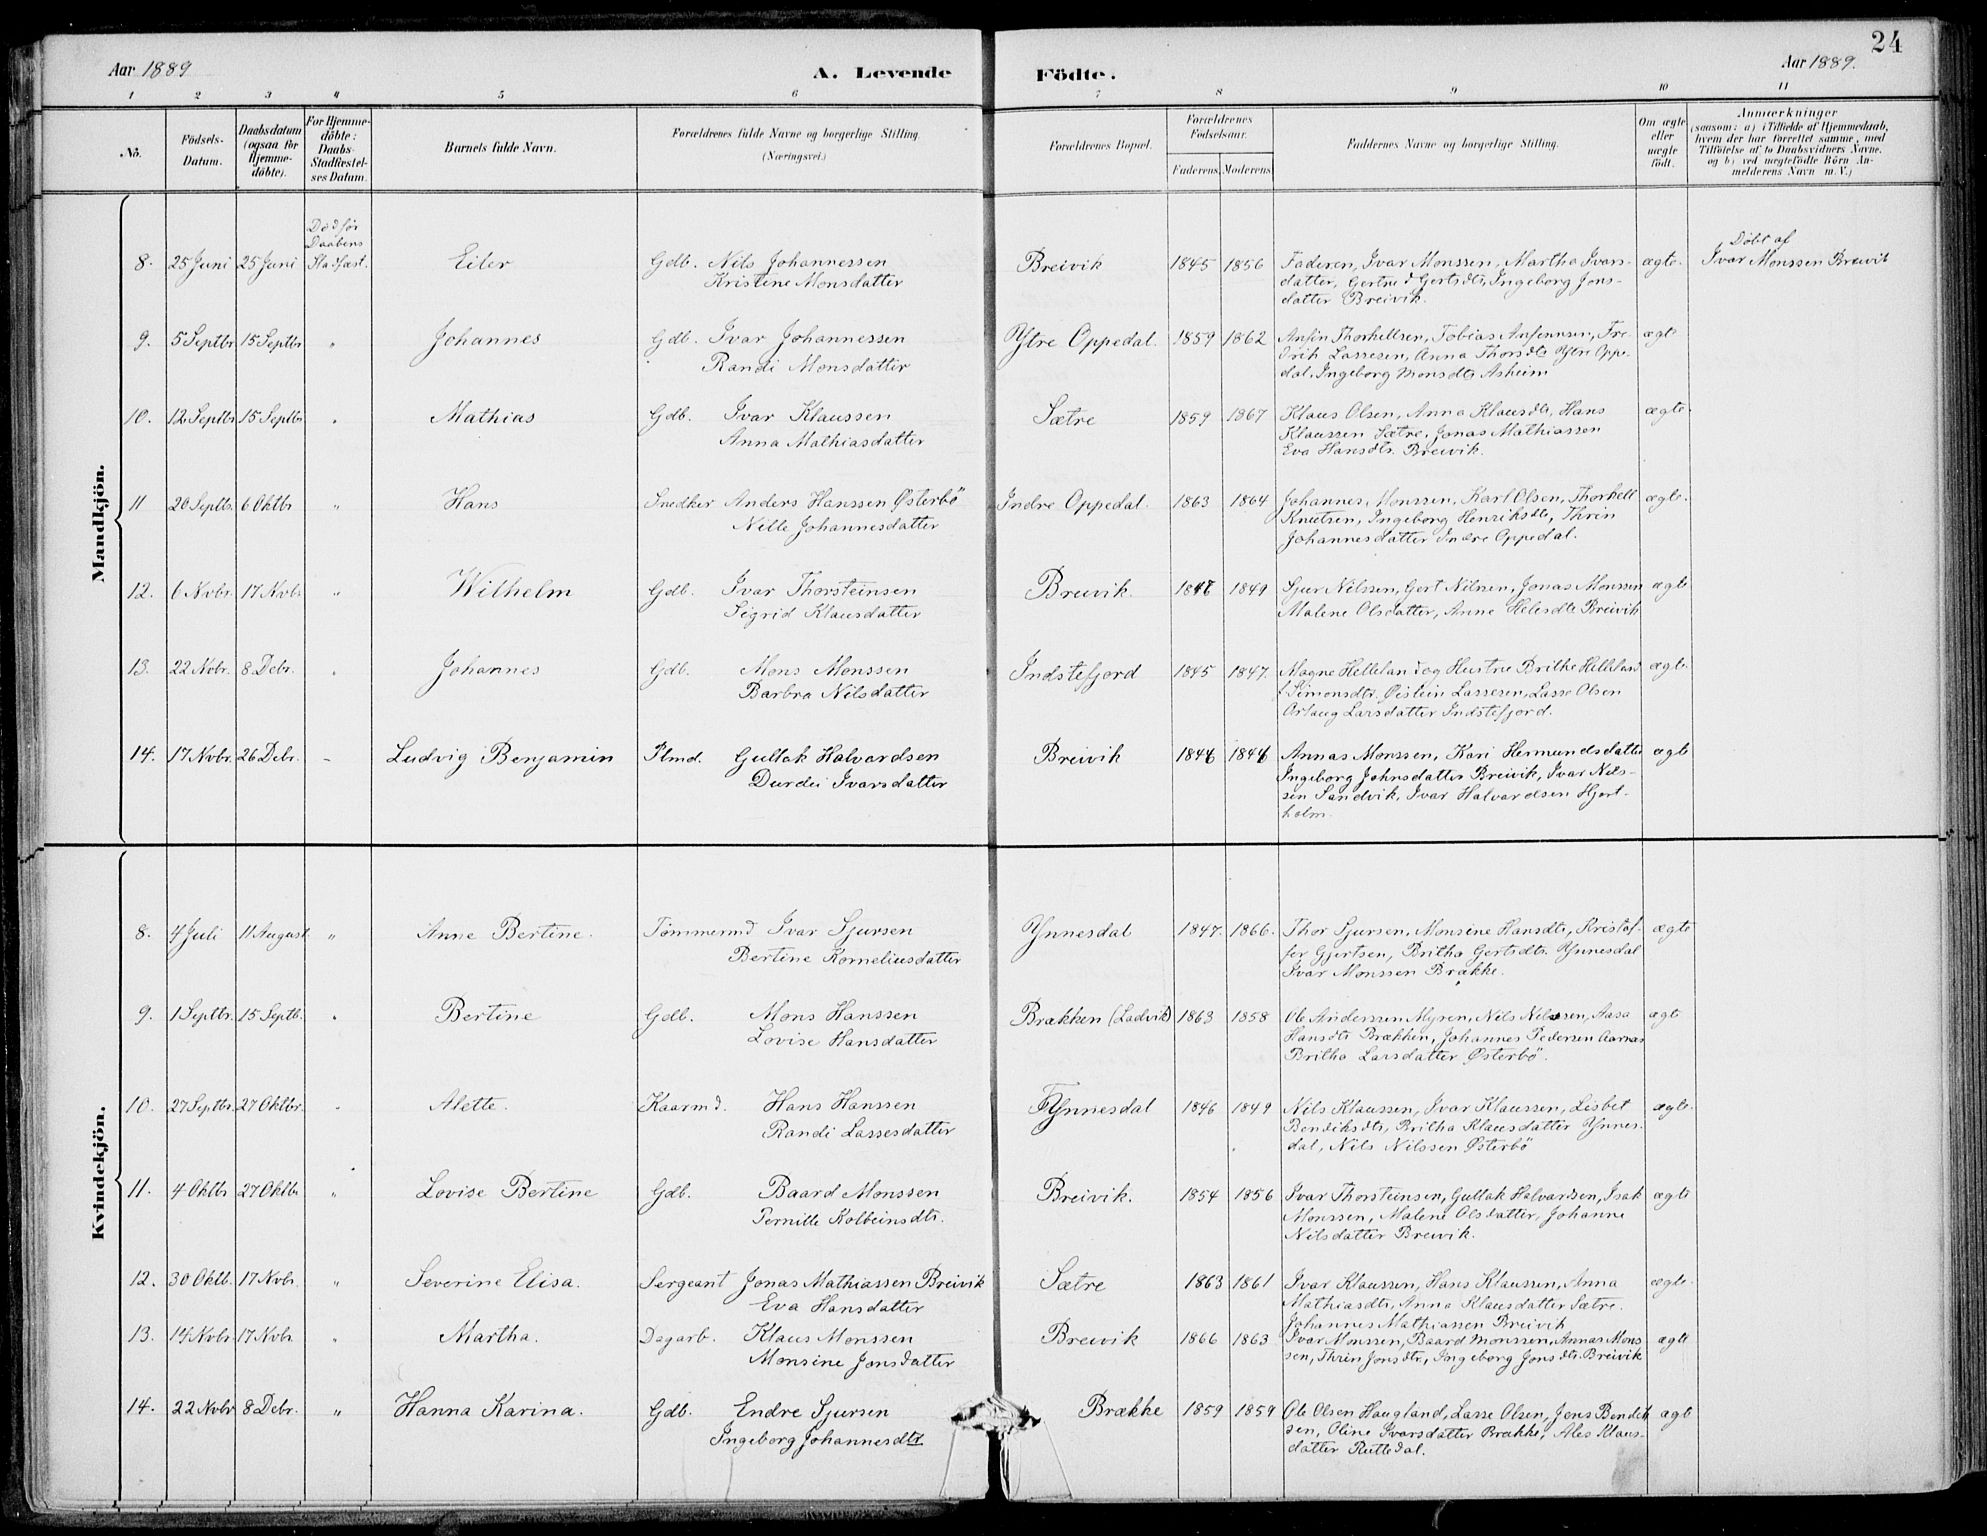 24
Aar 1889
A. Levende
Födte.
Aar 1889.
1 2 3 4 5 6 7 8 9 10 11
Nö.
Födsels-Datum.
Daabsdatum (ogsaa for Hjemme-döbte).
For Hjemme-döbte: Daabs-Stadfæstel-ses Datum.
Barnets fulde Navn.
Forældrenes fulde Navne og borgerlige Stilling. (Næringsvei.)
Forældrenes Bopæl.
Forældrenes Födselsaar.
Faderens. Moderens.
Faddernes Navne og borgerlige Stilling.
Om ægte eller uægte födt.
Anmærkninger
(saasom: a) i Tilfælde af Hjemmedaab,
hvem der har forrettet samme, med
Tilföielse af to Daabsvidners Navne.
og b) ved uægtefödte Börn An-
melderens Navn m.V.)
Mandkjön.
8. 25 Juni 25 Juni Död för Daabens Stadfæst. Eiler Gdb. Nils Johannessen Breivik 1845 1856 Faderen, Ivar Monssen, Martha Ivars- ægte. Döbt af
Kristine Monsdatter datter, Gertrud Gertsdtr, Ingeborg Jons- Ivar Monssen Breivik
datter Breivik.
9. 5 Septbr 15 Septbr " Johannes Gdb. Ivar Johannessen Ytre Oppedal. 1859 1862 Ansin Thorkellsen, Tobias Ansennsen, Fre- ægt
Randi Monsdatter drik Lassesen, Anna Thorsdtr Ytre Oppe-
dal. Ingeborg Monsdtr Asheim
10. 12 Septbr 15 Septbr " Mathias Gdb. Ivar Klaussen Sætre 1859 1867 Klaus Olsen, Anna Klausdtr, Hans ægte.
Anna Mathiasdatter Klaussen Sætre, Jonas Mathiassen
Eva Hansdtr. Breivik.
11 20 Septbr. 6 Oktbr " Hans Snedker Anders Hanssen Østerbö Indre Oppedal. 1863 1864 Johannes Monssen, Karl Olsen, Thorkell ægte.
Nille Johannesdatter Knutsen, Ingeborg Henriksdtr, Thrin
Johannesdatter Indre Oppedal.
12. 6 Nvbr. 17 Nvbr " Wilhelm Gdb. Ivar Thorsteinsen Breivik. 1849 Sjur Nilssen, Gert Nilsen, Jonas Monssen ægte
Sigrid Klausdatter Malene Olsdatter, Anne Breivik
13. 22 Nvbr. 8 Debr. " Johannes Gdb. Mons Monssen Indstefjord 1845 1847. Magne Helleland og Hustru Brithe Helleland ægte.
Barbra Nilsdatter f Simonsdtr. Øistein Lassesen, Lasse Olsen
Larsdatter Indstefjord.
14. 17 Nvbr. 26 Debr. - Ludvig Benjamin Plmd. Gullak Halvardsen Breivik Annas Monssen, Kari Hermundsdatter ægte
Durdei Ivarsdatter Ingeborg Johnsdatter Breivik, Ivar Nils-
sen Sandvik, Ivar Halvardsen Hjert-
holm.
Kvindekjön.
8. 4 Juli 11 August " Anne Bertine. Tömmermd Ivar Sjursen Ynnesdal 1847. 1866. Thor Sjursen, Monsine Hansdtr, Kristof- ægte
Bertine Korneliusdatter fer Gjertsen, Britha Gertsdtr. Ynnesdal
Ivar Monssen Brække.
9. 1 Septbr. 15 Septb. " Bertine Gdb. Mons Hanssen Brækken (Ladvik) 1863 1858 Ole Anderssen Myren, Nils Nilssen, Aasa ægte
Lovise Hansdatter Hansdtr Brækken, Johannes Pedersen Aarnas
Britha Larsdatter Østerbö.
10. 27 Septbr. 27 Oktbr. " Alette. Kaarmd. Hans Hanssen Ynnesdal 1846 1849 Nils Klaussen, Ivar Klaussen, Lisbet ægte.
Randi Lassesdatter Bendiksdtr, Britha Klausdatter Ynnes-
dal, Nils Nilssen Østerbö
11. 4 Oktbr 27 Oktbr " Lovise Bertine Gdb. Baard Monssen Breivik. 1854 1856 Ivar Thorsteinsen, Gullak Halvardsen, Isak ægte
Pernille Kolbeinsdtr. Monssen, Malene Olsdatter, Johanne
Nilsdatter Breivik.
12. 30 Oktb. 17 Nvbr. " Severine Elisa. Sergeant Jonas Mathiassen Breivik Sætre 1863 1861 Ivar Klaussen, Hans Klaussen, Anna ægte.
Eva Hansdatter Mathiasdtr, Anna Klausdatter Sætre.
Johannes Mathiassen Breivik
13. 14 Nvbr 17 Nvbr. " Martha. Dagarb. Klaus Monssen Breivik 1866 1863 Ivar Monssen, Baard Monssen, Annas Mons ægte
Monsine Jonsdatter sen, Thrin Jonsdtr, Ingeborg Jonsdtr. Breivik
14. 22 Nvbr 8 Debr. " Hanna Karina. Gdb. Endre Sjursen Brække 1859 1859 Ole Olsen Haugland, Lasse Olsen, Jens Bendik ægt
Ingeborg Johannesdtr sen, Oline Ivarsdatter Brække, Ales Klaus-
datter Rutledal.